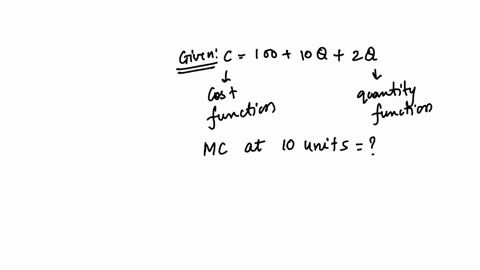 Given: C = 100 + 10Q + 2Q
Cost function
quantity function
MC at 10 units = ?